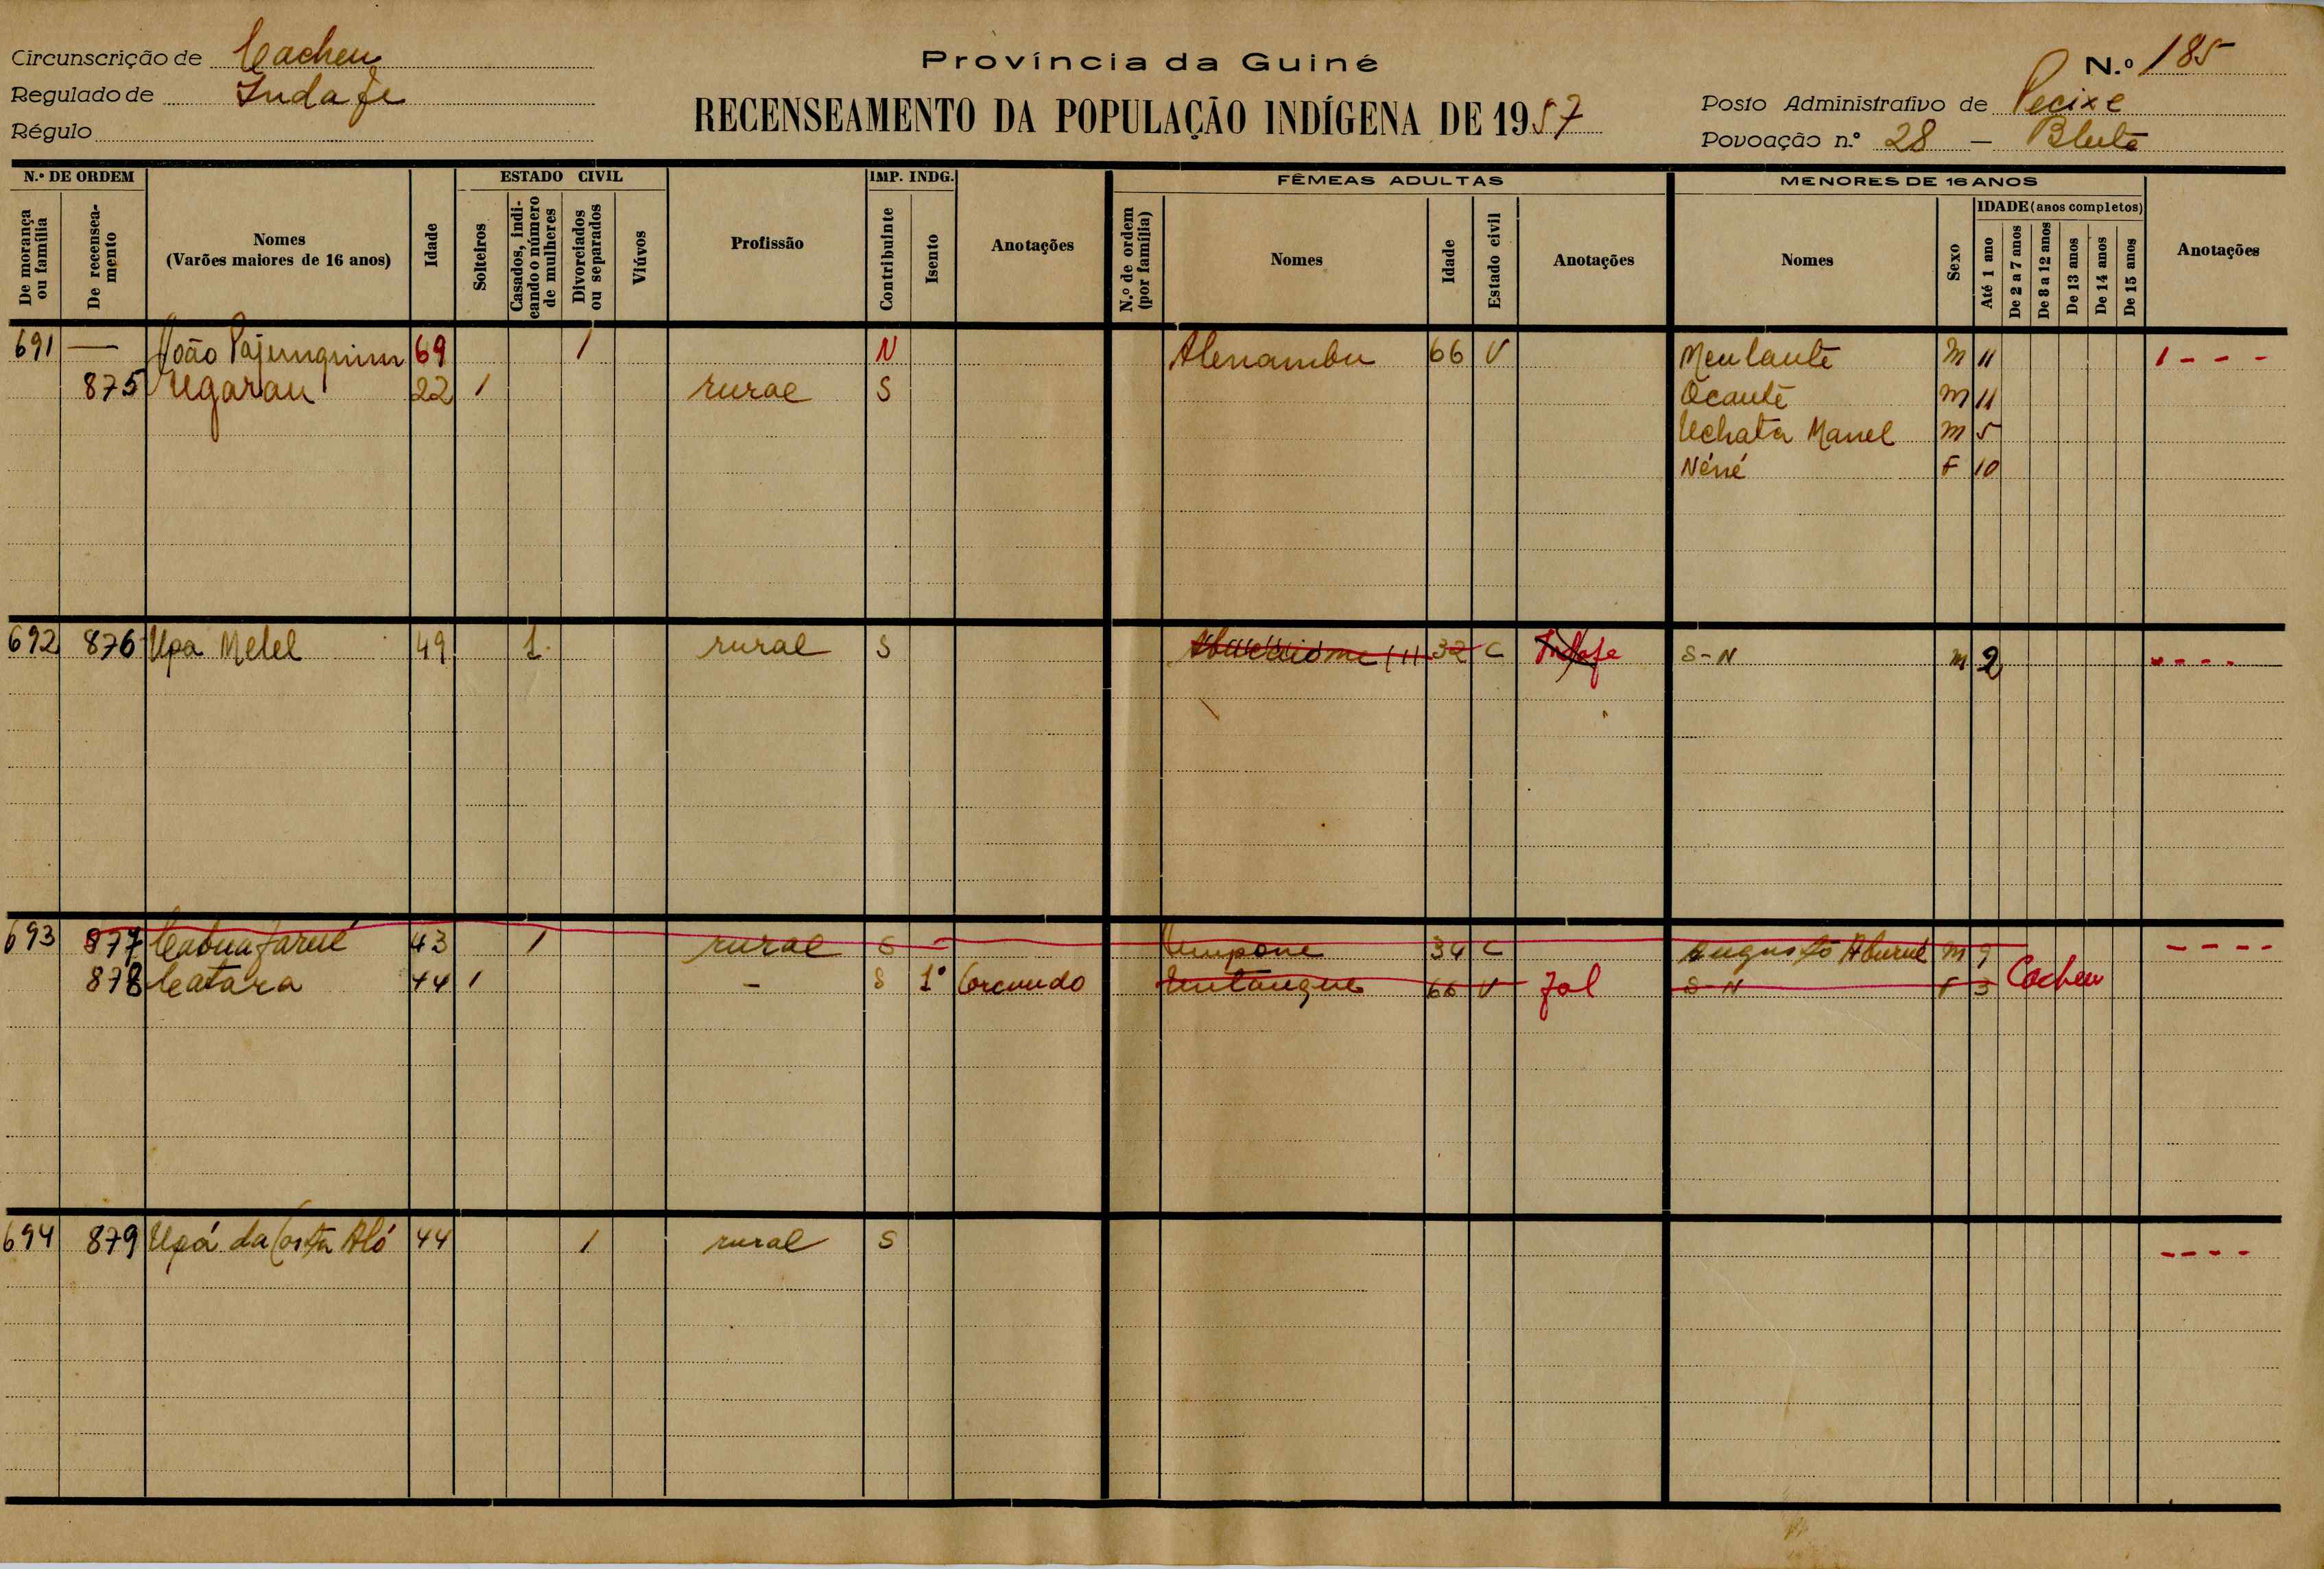 Circunscrição de Cacheu
Regulado de Indafe
Régulo
Província da Guiné
RECENSEAMENTO DA POPULAÇÃO INDÍGENA DE 1957
N.º 185
Posto Administrativo de Pecixe
Povoação n.º 28 -
N.º DE ORDEM
De morança ou família
De recenseamento
Nomes
(Varões maiores de 16 anos)
Idade
ESTADO CIVIL
Solteiros
Casados, indicando o número de mulheres
Divorciados ou separados
Viúvos
Profissão
IMP. INDG.
Contribuinte
Isento
Anotações
FÊMEAS ADULTAS
N.º de ordem (por família)
Nomes
Idade
Estado civil
Anotações
MENORES DE 16 ANOS
Nomes
Sexo
IDADE (anos completos)
Até 1 ano
De 2 a 7 anos
De 8 a 12 anos
De 13 anos
De 14 anos
De 15 anos
Anotações
691 — João Pajunquim 69 1 N Alenambu 66 V Meulante M 11 1 - - -
875 Ugarau 22 1 rural S Ocante M 11
Uchata Manel M 5
Néné F 10
692 876 Upa Melel 49 1 rural S 32 C Indafe S-N M 2 - - - -
693 877 43 1 rural S - Umpone 34 C Augusto M 9 - - - -
878 Catara 44 1 - S 1º Corcundo Untangue 66 V Jol S-N F 3 Cacheu
694 879 Upá da Costa Aló 44 1 rural S - - - -